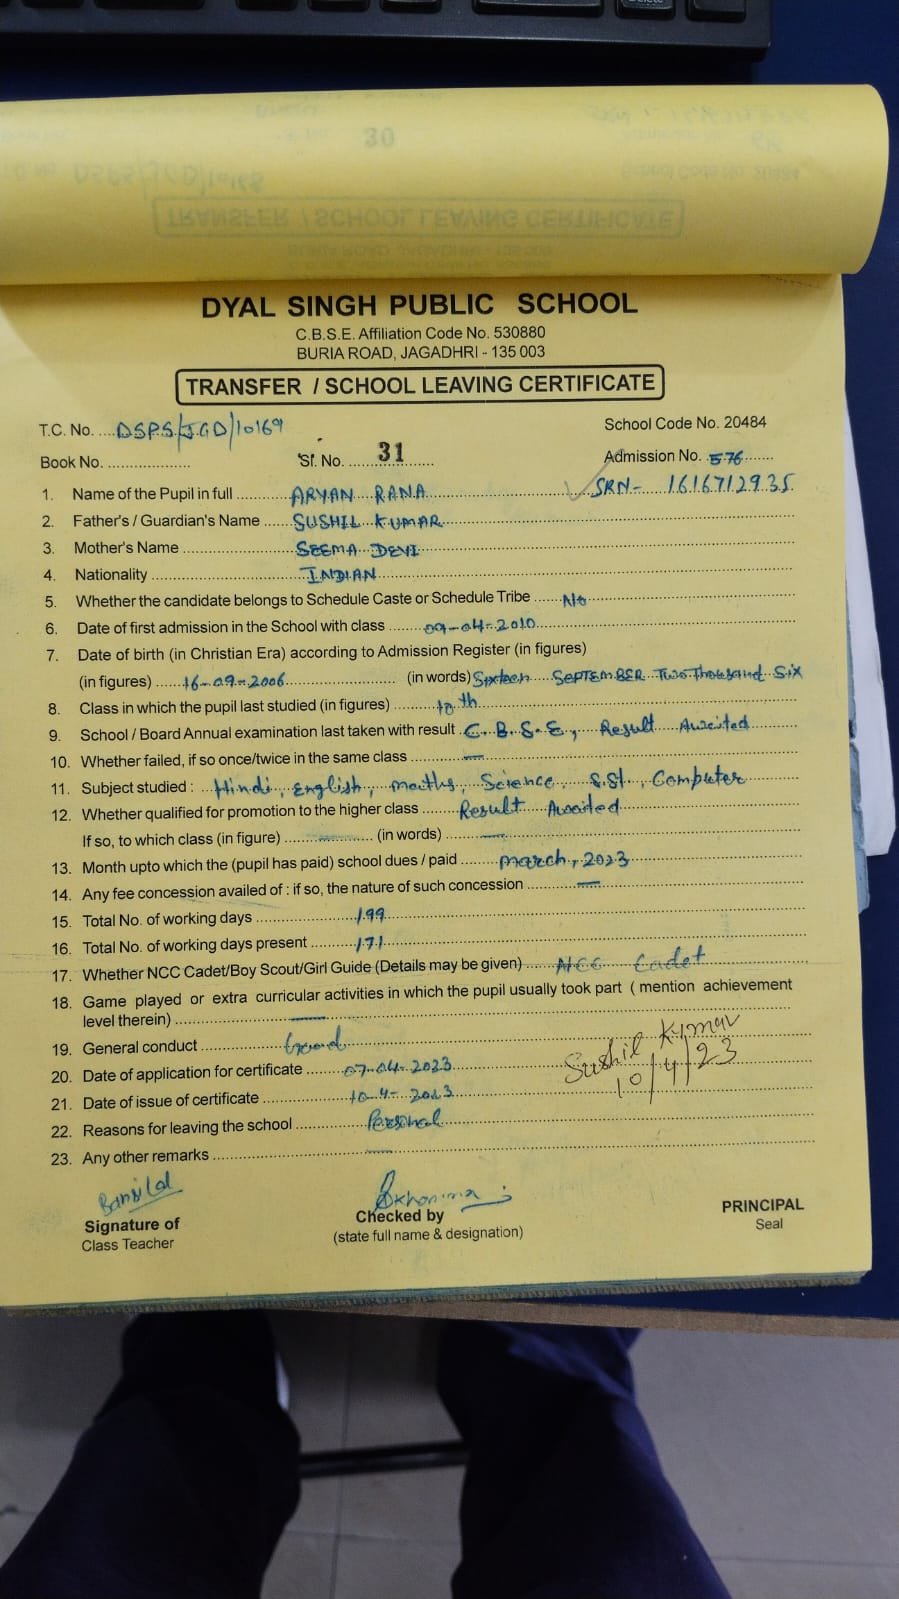 Delete
30
TRANSFER / SCHOOL LEAVING CERTIFICATE
DYAL SINGH PUBLIC SCHOOL
C.B.S.E. Affiliation Code No. 530880
BURIA ROAD, JAGADHRI - 135 003
TRANSFER / SCHOOL LEAVING CERTIFICATE
T.C. No. ....DSPS/JGD/10169 School Code No. 20484
Book No. .................... Sr. No. ....31.............. Admission No. .576.......
1. Name of the Pupil in full ............ARYAN RANA............ SRN- 1616712935
2. Father's / Guardian's Name ......SUSHIL KUMAR............
3. Mother's Name ............SEEMA DEVI............
4. Nationality ............INDIAN............
5. Whether the candidate belongs to Schedule Caste or Schedule Tribe ......No............
6. Date of first admission in the School with class ........09-04-2010............
7. Date of birth (in Christian Era) according to Admission Register (in figures)
(in figures) .....16-09-2006............ (in words) Sixteen SEPTEMBER Two Thousand Six
8. Class in which the pupil last studied (in figures) ............10th............
9. School / Board Annual examination last taken with result .C.B.S.E., Result Awaited
10. Whether failed, if so once/twice in the same class ............—............
11. Subject studied : ...Hindi, English, maths, Science, S.St, Computer
12. Whether qualified for promotion to the higher class ........Result Awaited............
If so, to which class (in figure) ......—...... (in words) ......—......
13. Month upto which the (pupil has paid) school dues / paid .........march, 2023............
14. Any fee concession availed of : if so, the nature of such concession ............—............
15. Total No. of working days ............199............
16. Total No. of working days present ............171............
17. Whether NCC Cadet/Boy Scout/Girl Guide (Details may be given) ......NCC Cadet
18. Game played or extra curricular activities in which the pupil usually took part ( mention achievement
level therein) ............—............
19. General conduct ............Good............
Sushil Kumar
10/4/23
20. Date of application for certificate ........07-04-2023............
21. Date of issue of certificate ............10-4-2023............
22. Reasons for leaving the school ............Personal............
23. Any other remarks ............—............
Bansi Lal
Signature of
Class Teacher
Checked by
(state full name & designation)
PRINCIPAL
Seal